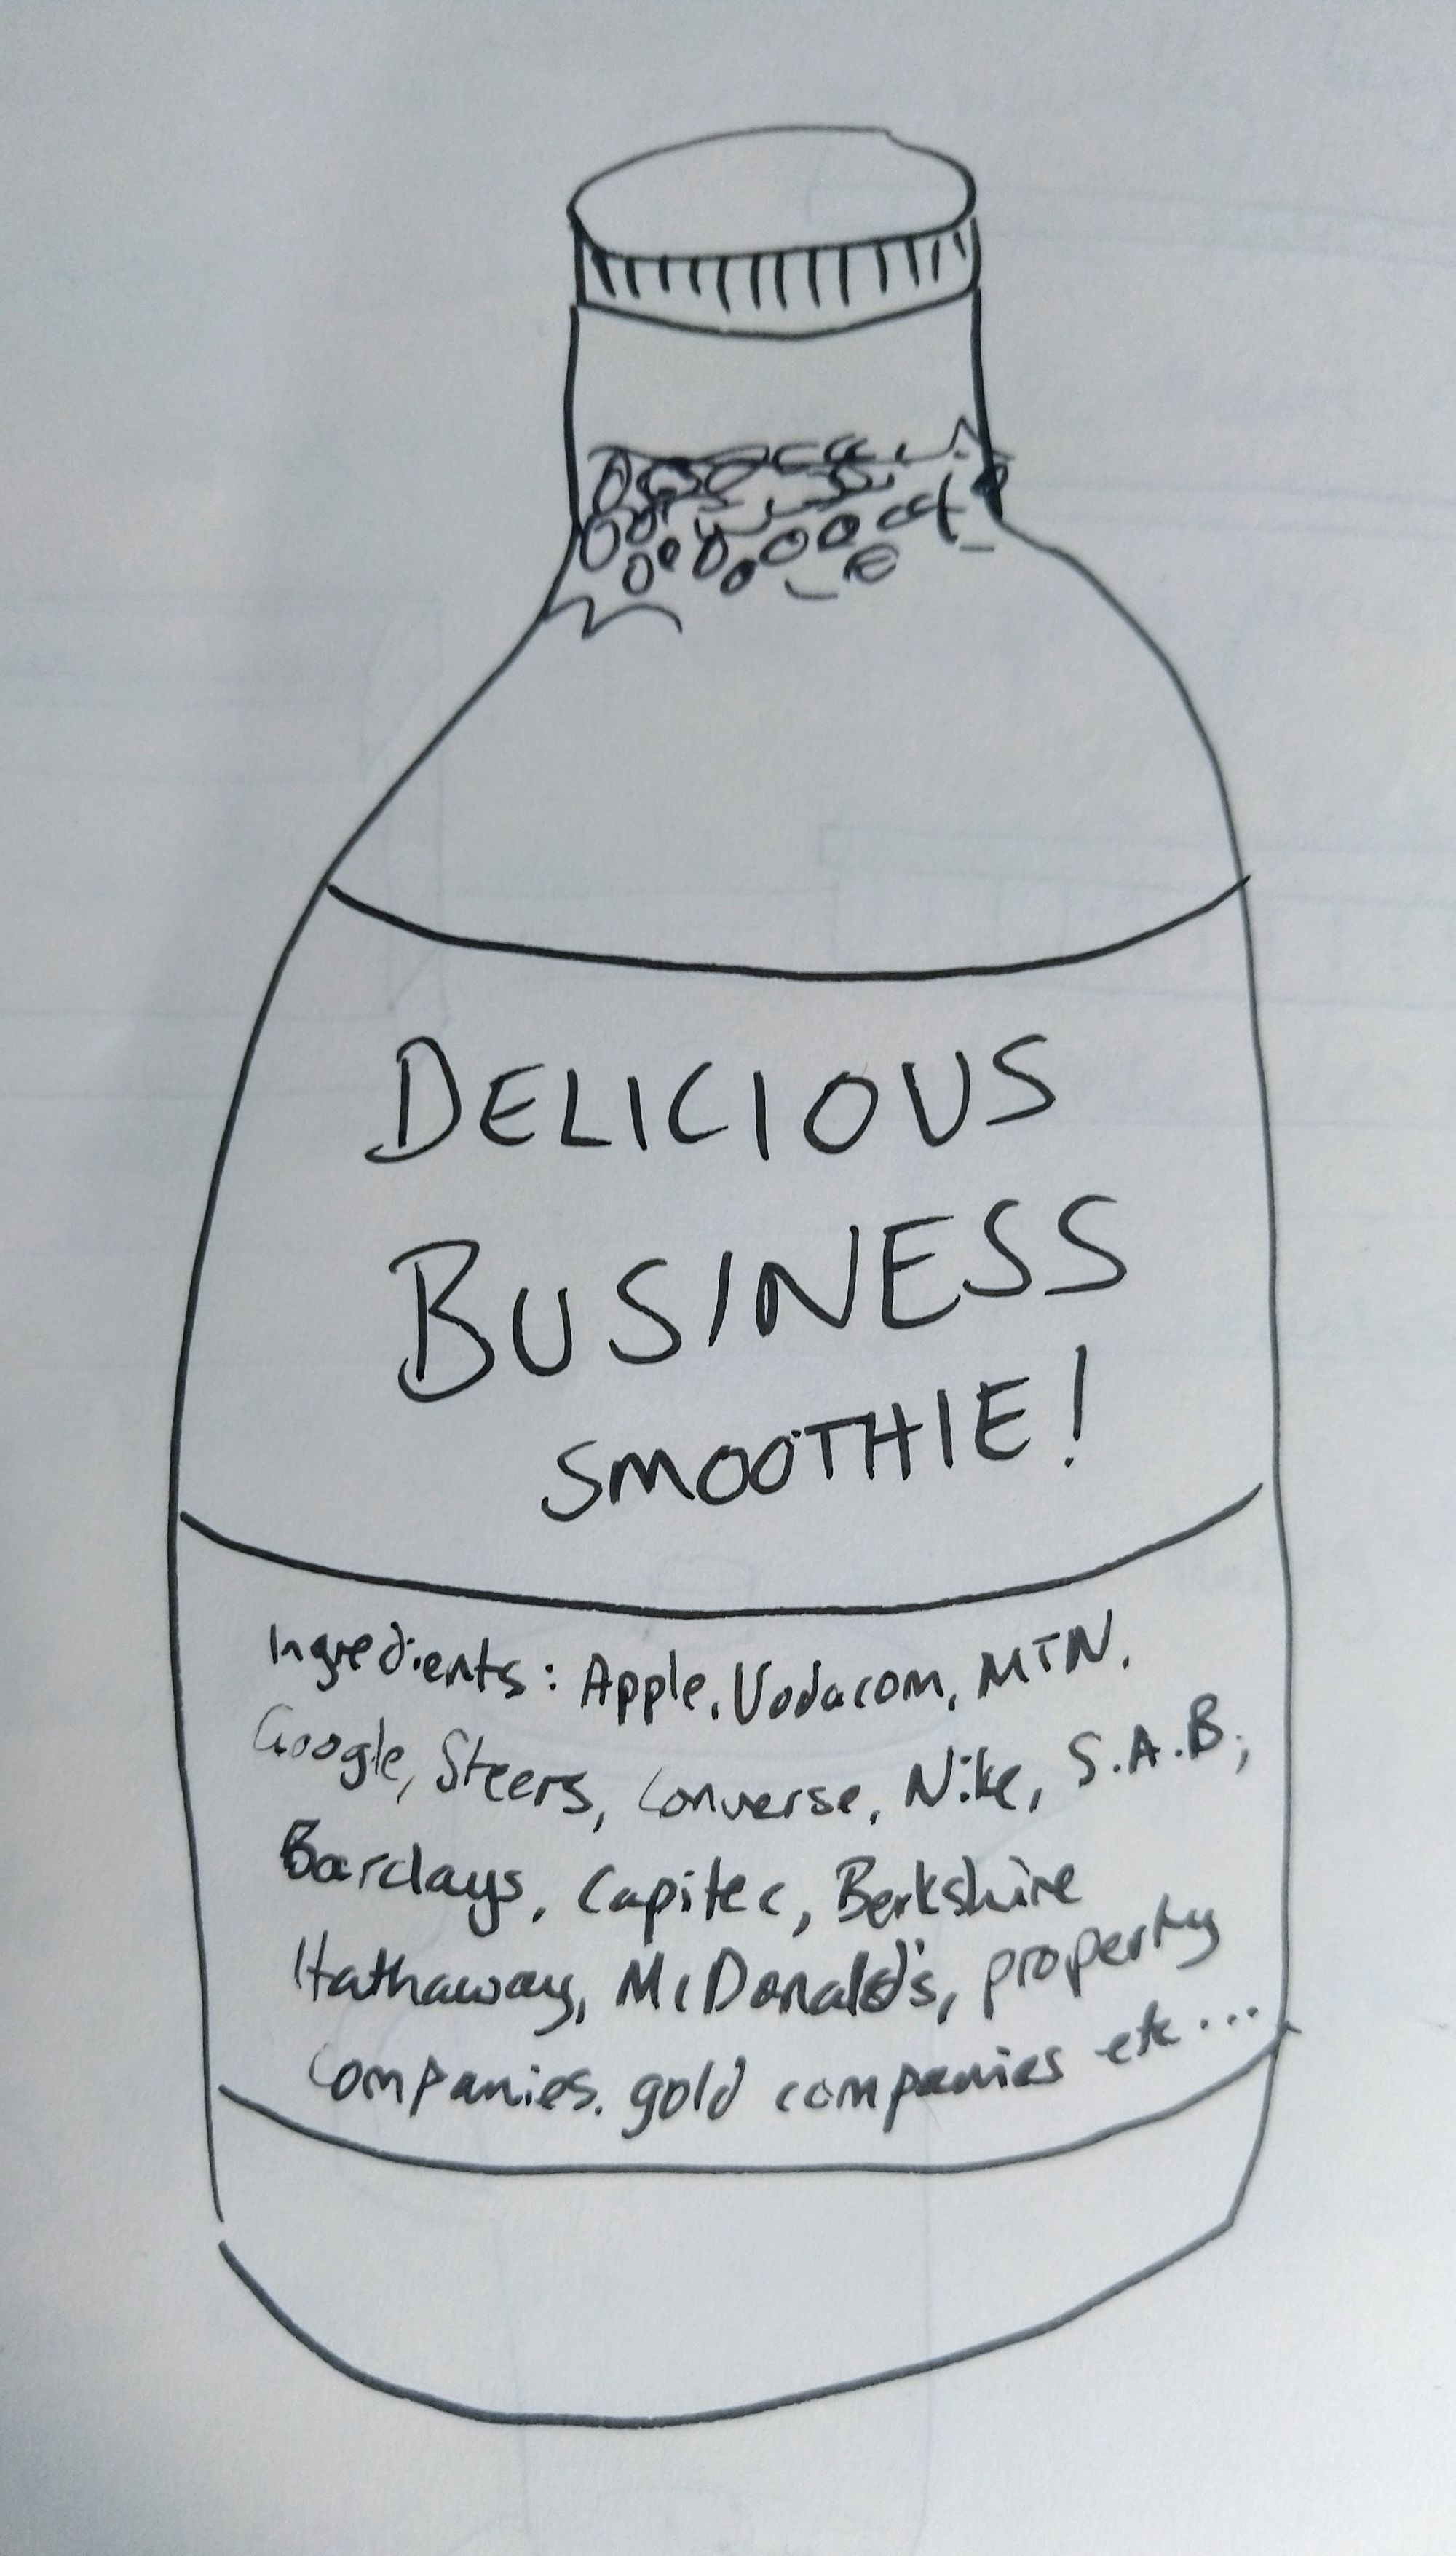 DELICIOUS
BUSINESS
SMOOTHIE!
Ingredients: Apple, Vodacom, MTN,
Google, Steers, Converse, Nike, S.A.B,
Barclays, Capitec, Berkshire
Hathaway, McDonald's, property
companies, gold companies etc...